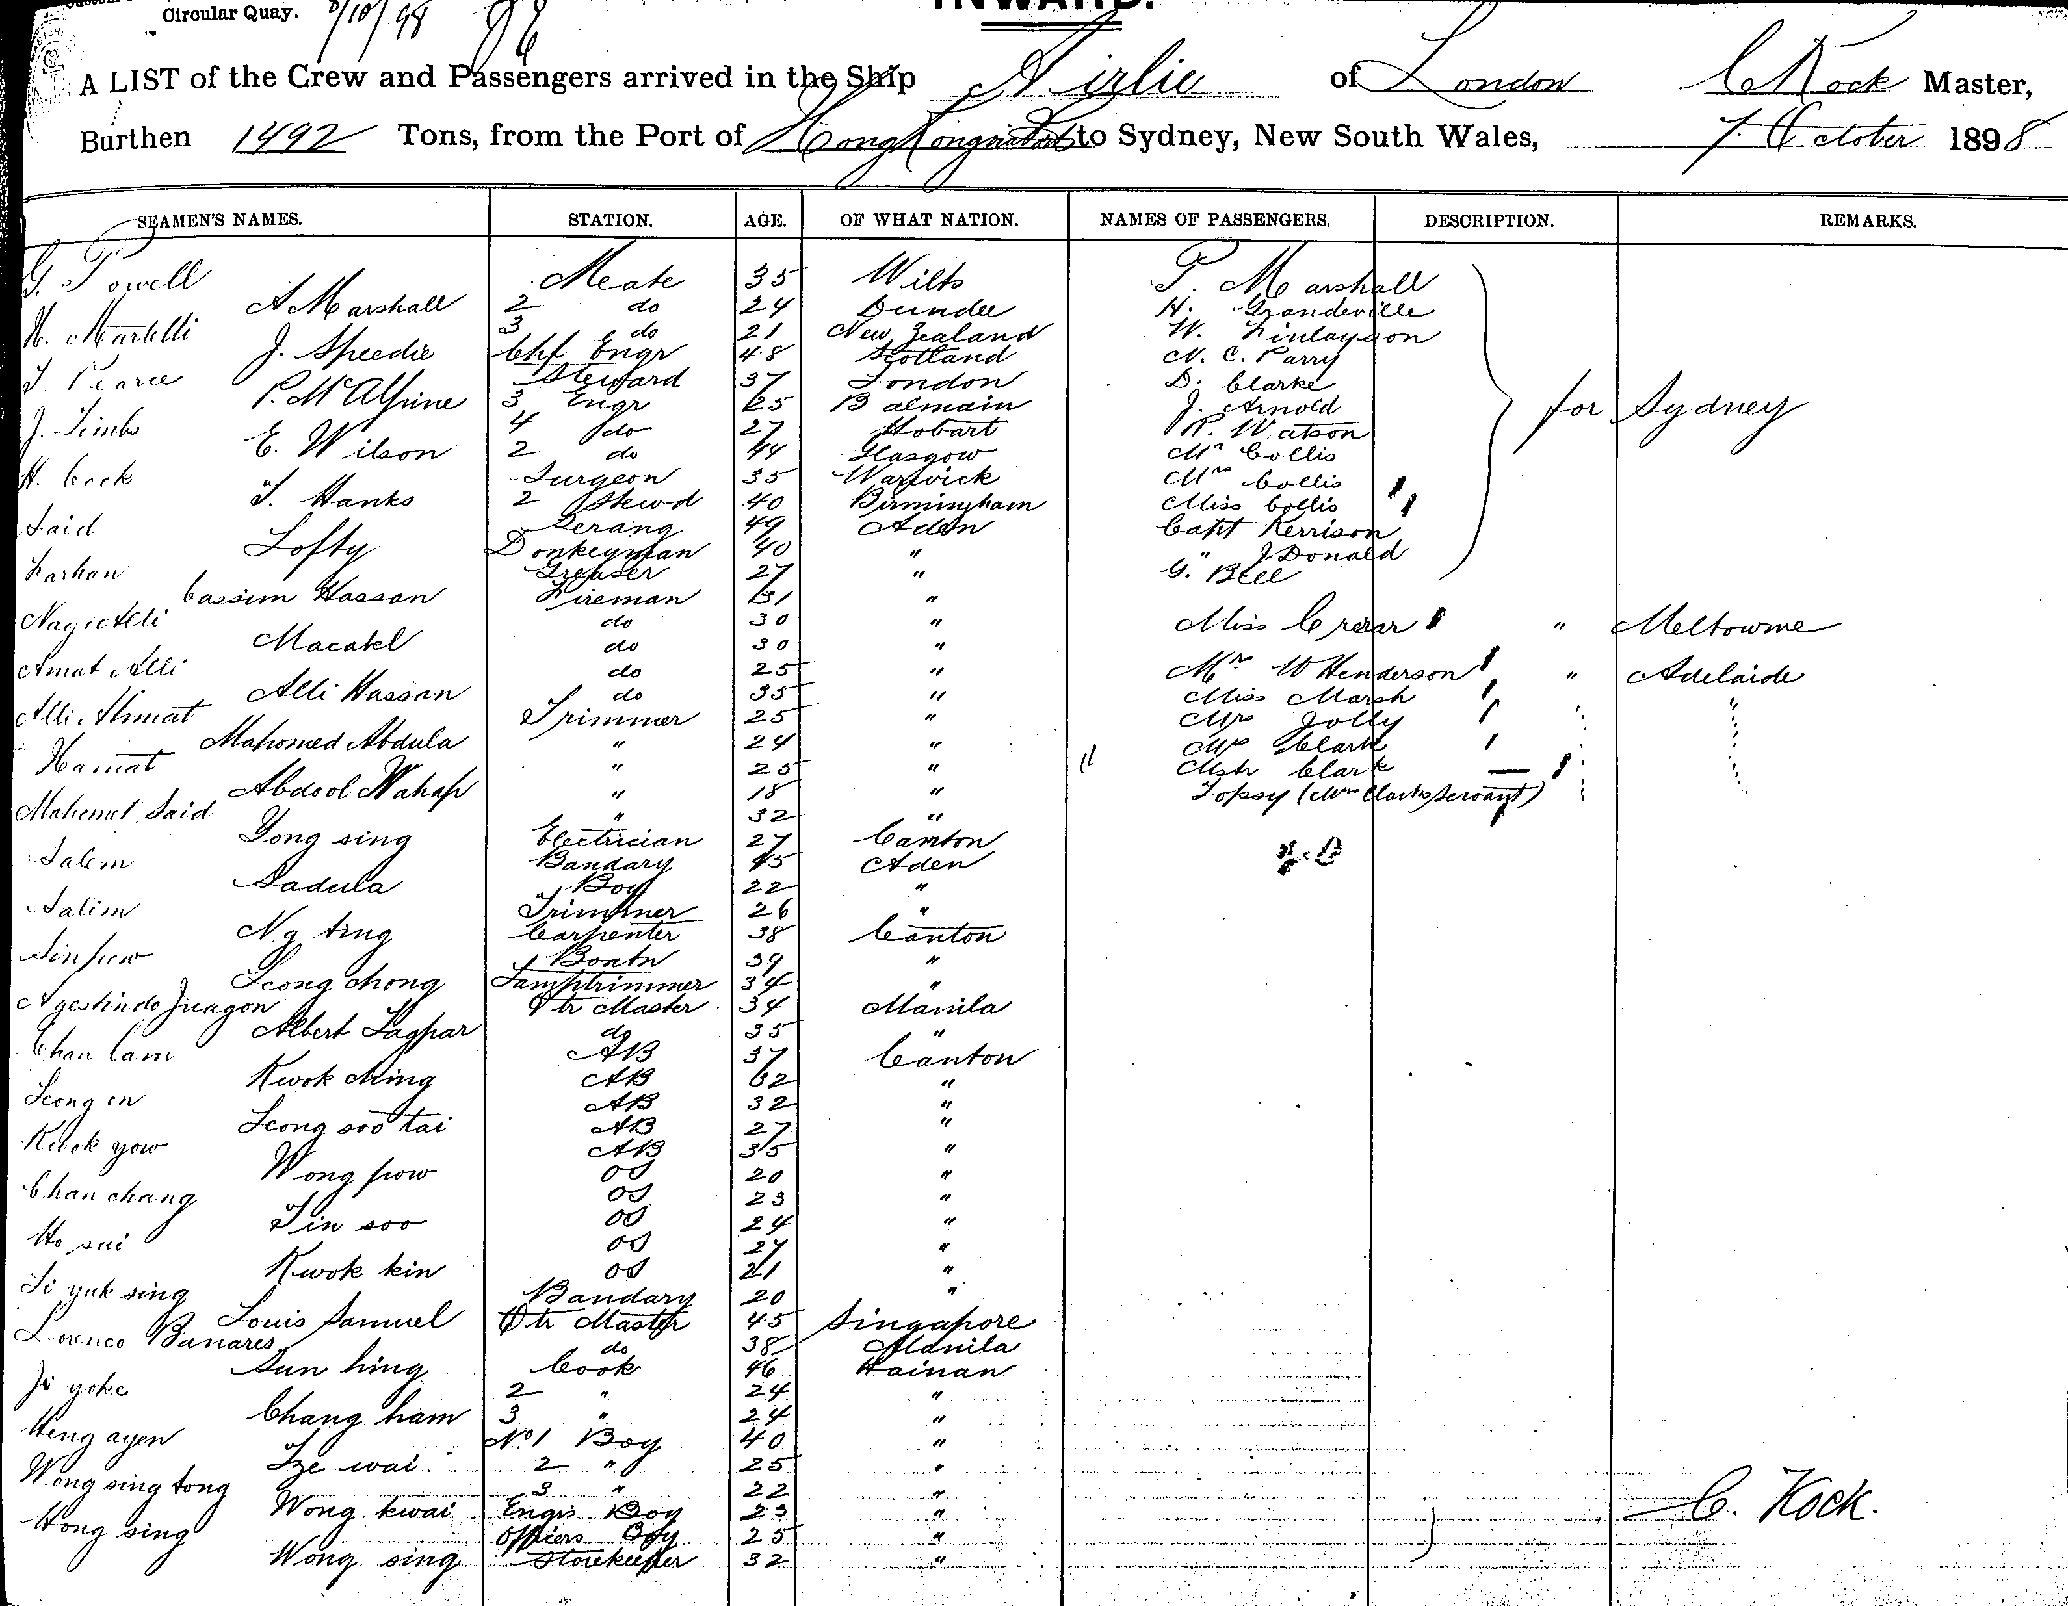 Circular Quay. 8/10/98
INWARD.
A LIST of the Crew and Passengers arrived in the Ship Airlie of London C Kock Master,
Burthen 1492 Tons, from the Port of Hong Kong to Sydney, New South Wales, 7 October 1898
SEAMEN'S NAMES. STATION. AGE. OF WHAT NATION. NAMES OF PASSENGERS. DESCRIPTION. REMARKS.
G. Powell Mate 35 Wilts P. Marshall
A Marshall 2 do 24 Dundee H. Grandeville
H. Martelli 3 do 21 New Zealand W. Finlayson
J. Speedie Chf Engr 48 Scotland N. C. Parry
T. Pearce Steward 37 London D. Clarke
P. McAlpine 3 Engr 25 Balmain J. Arnold for Sydney
J. Timbs 4 do 27 Hobart R. Watson
E. Wilson 2 do 44 Glasgow Mr Collis
H. Cock Surgeon 35 Warwick Mrs Collis "
T. Hanks 2 Stewd 40 Birmingham Miss Collis "
Said Serang 49 Aden Capt Kerrison
Lofty Donkeyman 40 " " J Donald
Farhan Greaser 27 " G. Bell
Cassim Hassan Fireman 31 "
Nagi Alli do 30 " Miss Crerar " Melbourne
Macakel do 30 "
Amat Alli do 25 " Mrs W Henderson " Adelaide
Alli Hassan do 35 " Miss Marsh "
Alli Ahmat Trimmer 25 " Mrs Jolly
Mahomed Abdula " 24 " Mrs Clark
Hamat " 25 " Mstr Clark
Abdool Wahap " 18 " Topsy (Mrs Clarks servant)
Mahomet Said " 32 "
Yong sing Electrician 27 Canton
Salem Bandary 45 Aden
Sadula Boy 22 "
Salim Trimmer 26 "
Ng ting Carpenter 38 Canton
Sin pew Boatn 39 "
Leong chong Lamptrimmer 34 "
Qtr Master 34 Manila
Albert Gaspar do 35 "
Chan lam AB 37 Canton
Kwok ching AB 62 "
Leong en AB 32 "
Leong soo tai AB 27 "
Kwok yow AB 35 "
Wong pow OS 20 "
Chan chang OS 23 "
Tin soo OS 24 "
Ho sui OS 27 "
Kwok kin OS 21 "
Li yuk sing Bandary 20 "
Louis Samuel Qtr Master 45 Singapore
Lorenco Banares do 38 Manila
Sun hing Cook 46 Hainan
Ji yoke 2 " 24 "
Chang ham 3 " 24 "
Heng ayen No 1 Boy 40 "
Tze wai 2 " 25 "
Wong sing tong 3 " 22 "
Wong kwai Engrs Boy 23 " C. Kock.
Hong sing Officers Boy 25 "
Wong sing Storekeeper 32 "